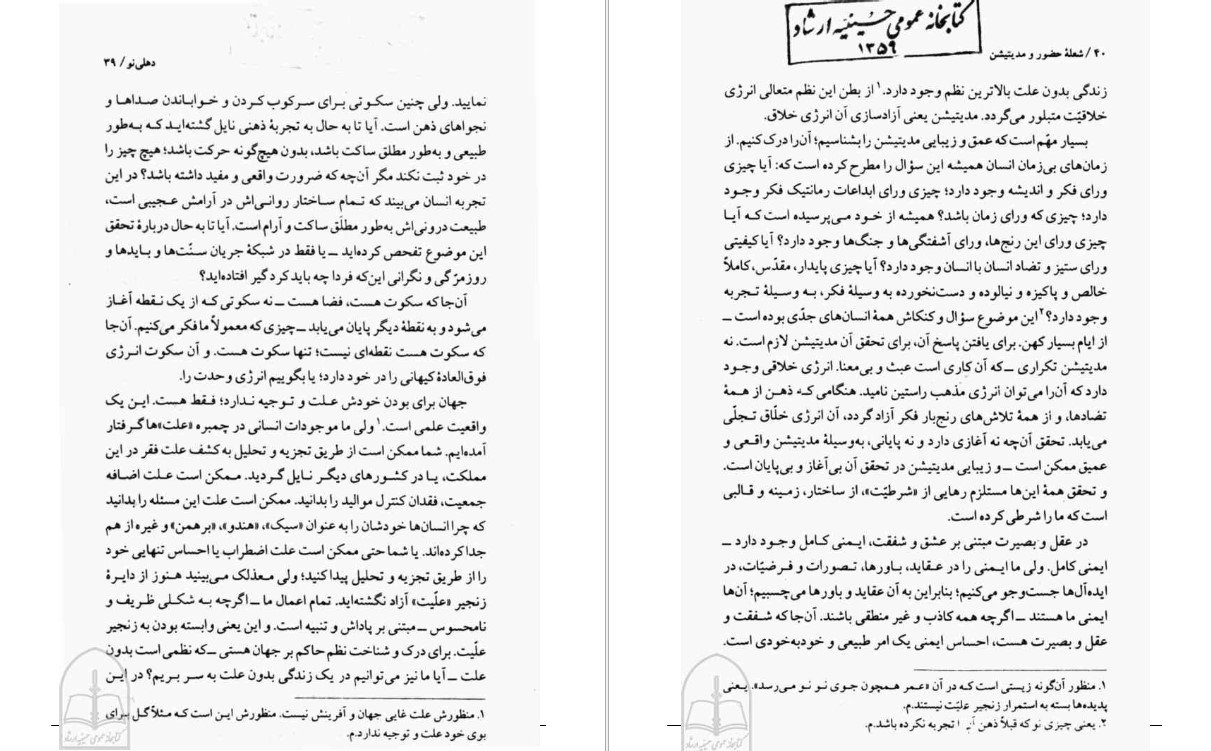 دهلی‌نو / ۳۹
نمایید. ولی چنین سکوتی برای سرکوب کردن و خواباندن صداها و
نجواهای ذهن است. آیا تا به حال به تجربهٔ ذهنی نایل گشته‌اید که به‌طور
طبیعی و به‌طور مطلق ساکت باشد، بدون هیچ‌گونه حرکت باشد؛ هیچ چیز را
در خود ثبت نکند مگر آن‌چه که ضرورت واقعی و مفید داشته باشد؟ در این
تجربه انسان می‌بیند که تمام ساختار روانی‌اش در آرامش عجیبی است،
طبیعت درونی‌اش به‌طور مطلق ساکت و آرام است. آیا تا به حال دربارهٔ تحقق
این موضوع تفحص کرده‌اید ــ یا فقط در شبکهٔ جریان سنّت‌ها و بایدها و
روزمرّگی و نگرانی این‌که فردا چه باید کرد گیر افتاده‌اید؟
آن‌جا که سکوت هست، فضا هست ــ نه سکوتی که از یک نقطه آغاز
می‌شود و به نقطهٔ دیگر پایان می‌یابد ــ چیزی که معمولاً ما فکر می‌کنیم. آن‌جا
که سکوت هست نقطه‌ای نیست؛ تنها سکوت هست. و آن سکوت انرژی
فوق‌العادهٔ کیهانی را در خود دارد؛ یا بگوییم انرژی وحدت را.
جهان برای بودن خودش علت و توجیه ندارد؛ فقط هست. این یک
واقعیت علمی است.۱ ولی ما موجودات انسانی در چمبره «علت»ها گرفتار
آمده‌ایم. شما ممکن است از طریق تجزیه و تحلیل به کشف علت فقر در این
مملکت، یا در کشورهای دیگر نایل گردید. ممکن است علت اضافه
جمعیت، فقدان کنترل موالید را بدانید. ممکن است علت این مسئله را بدانید
که چرا انسان‌ها خودشان را به عنوان «سیک»، «هندو»، «برهمن» و غیره از هم
جدا کرده‌اند. یا شما حتی ممکن است علت اضطراب یا احساس تنهایی خود
را از طریق تجزیه و تحلیل پیدا کنید؛ ولی معذلک می‌بینید هنوز از دایرهٔ
زنجیر «علّیت» آزاد نگشته‌اید. تمام اعمال ما ــ اگرچه به شکلی ظریف و
نامحسوس ــ مبتنی بر پاداش و تنبیه است. و این یعنی وابسته بودن به زنجیر
علّیت. برای درک و شناخت نظم حاکم بر جهان هستی ــ که نظمی است بدون
علت ــ آیا ما نیز می‌توانیم در یک زندگی بدون علت به سر بریم؟ در این
۱. منظورش علت غایی جهان و آفرینش نیست. منظورش این است که مثلاً گل برای
بوی خود علت و توجیه ندارد.م.
کتابخانه عمومی حسینیه ارشاد
کتابخانه عمومی حسینیه ارشاد
۱۳۵۹
۴۰ / شعلهٔ حضور و مدیتیشن
زندگی بدون علت بالاترین نظم وجود دارد.۱ از بطن این نظم متعالی انرژی
خلاقیّت متبلور می‌گردد. مدیتیشن یعنی آزادسازی آن انرژی خلاق.
بسیار مهّم است که عمق و زیبایی مدیتیشن را بشناسیم؛ آن را درک کنیم. از
زمان‌های بی‌زمان انسان همیشه این سؤال را مطرح کرده است که: آیا چیزی
ورای فکر و اندیشه وجود دارد؛ چیزی ورای ابداعات رمانتیک فکر وجود
دارد؛ چیزی که ورای زمان باشد؟ همیشه از خود می‌پرسیده است که آیا
چیزی ورای این رنج‌ها، ورای آشفتگی‌ها و جنگ‌ها وجود دارد؟ آیا کیفیتی
ورای ستیز و تضاد انسان با انسان وجود دارد؟ آیا چیزی پایدار، مقدّس، کاملاً
خالص و پاکیزه و نیالوده و دست‌نخورده به وسیلهٔ فکر، به وسیلهٔ تجربه
وجود دارد؟۲ این موضوع سؤال و کنکاش همهٔ انسان‌های جدّی بوده است ــ
از ایام بسیار کهن. برای یافتن پاسخ آن، برای تحقق آن مدیتیشن لازم است. نه
مدیتیشن تکراری ــ که آن کاری است عبث و بی‌معنا. انرژی خلاقی وجود
دارد که آن را می‌توان انرژی مذهب راستین نامید. هنگامی که ذهن از همهٔ
تضادها، و از همهٔ تلاش‌های رنج‌بار فکر آزاد گردد، آن انرژی خلّاق تجلّی
می‌یابد. تحقق آن‌چه نه آغازی دارد و نه پایانی، به‌وسیلهٔ مدیتیشن واقعی و
عمیق ممکن است ــ و زیبایی مدیتیشن در تحقق آن بی‌آغاز و بی‌پایان است.
و تحقق همهٔ این‌ها مستلزم رهایی از «شرطیّت»، از ساختار، زمینه و قالبی
است که ما را شرطی کرده است.
در عقل و بصیرت مبتنی بر عشق و شفقت، ایمنی کامل وجود دارد ــ
ایمنی کامل. ولی ما ایمنی را در عقاید، باورها، تصورات و فرضیّات، در
ایده‌آل‌ها جست‌وجو می‌کنیم؛ بنابراین به آن عقاید و باورها می‌چسبیم؛ آن‌ها
ایمنی ما هستند ــ اگرچه همه کاذب و غیر منطقی باشند. آن‌جا که شفقت و
عقل و بصیرت هست، احساس ایمنی یک امر طبیعی و خودبه‌خودی است.
۱. منظور آن‌گونه زیستی است که در آن «عمر همچون جوی نو نو می‌رسد». یعنی
پدیده‌ها بسته به استمرار زنجیر علیت نیستند.م.
۲. یعنی چیزی نو که قبلاً ذهن آن را تجربه نکرده باشد.م.
کتابخانه عمومی حسینیه ارشاد